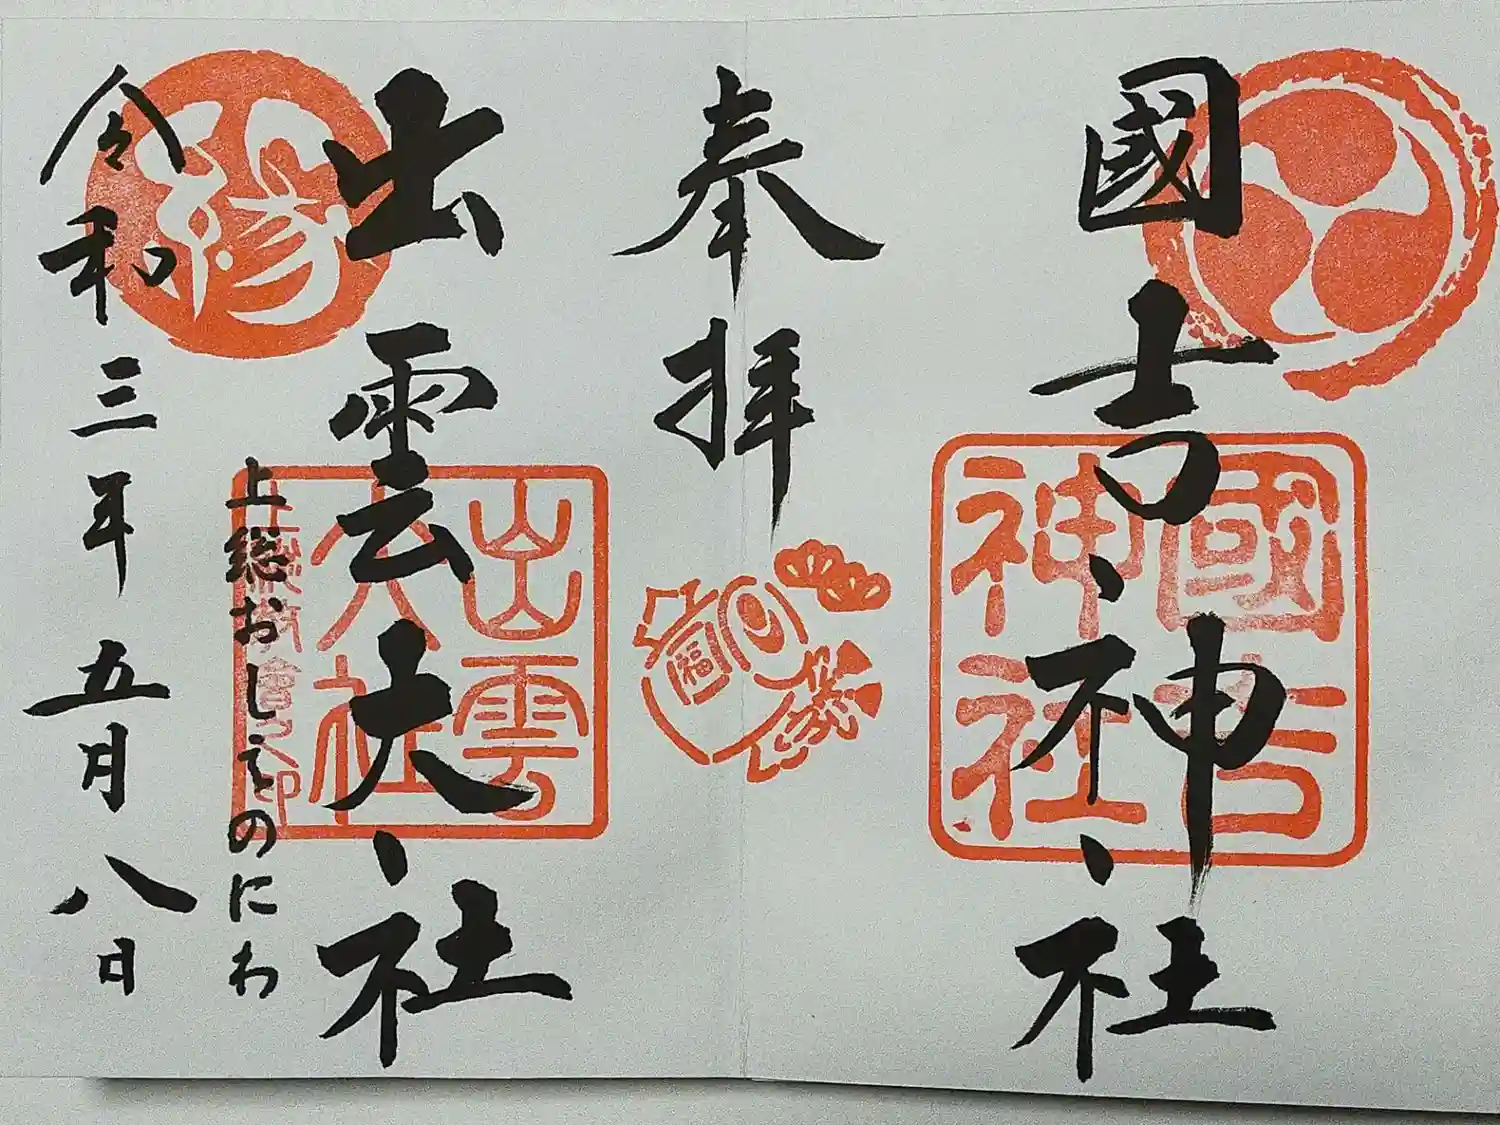 國吉神社
國吉
神社
奉拝
福
出雲大社
出雲
大社
上総おしえのにわ
縁
令和三年五月八日